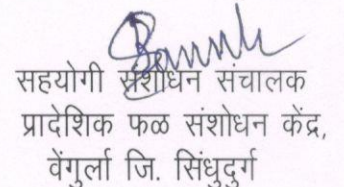 सहयोगी संशोधन संचालक
प्रादेशिक फळ संशोधन केंद्र,
वेंगुर्ला जि. सिंधुदुर्ग